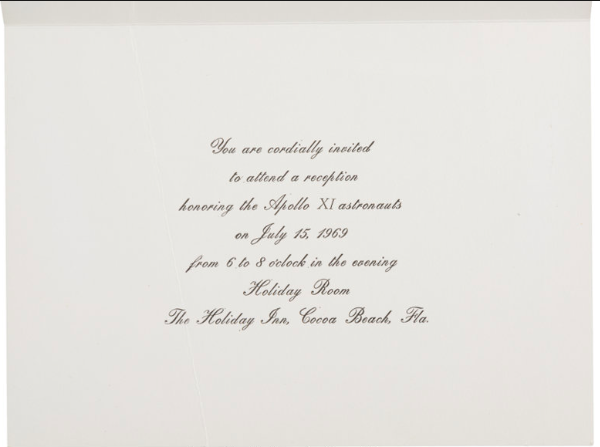 You are cordially invited
to attend a reception
honoring the Apollo XI astronauts
on July 15, 1969
from 6 to 8 o'clock in the evening
Holiday Room
The Holiday Inn, Cocoa Beach, Fla.